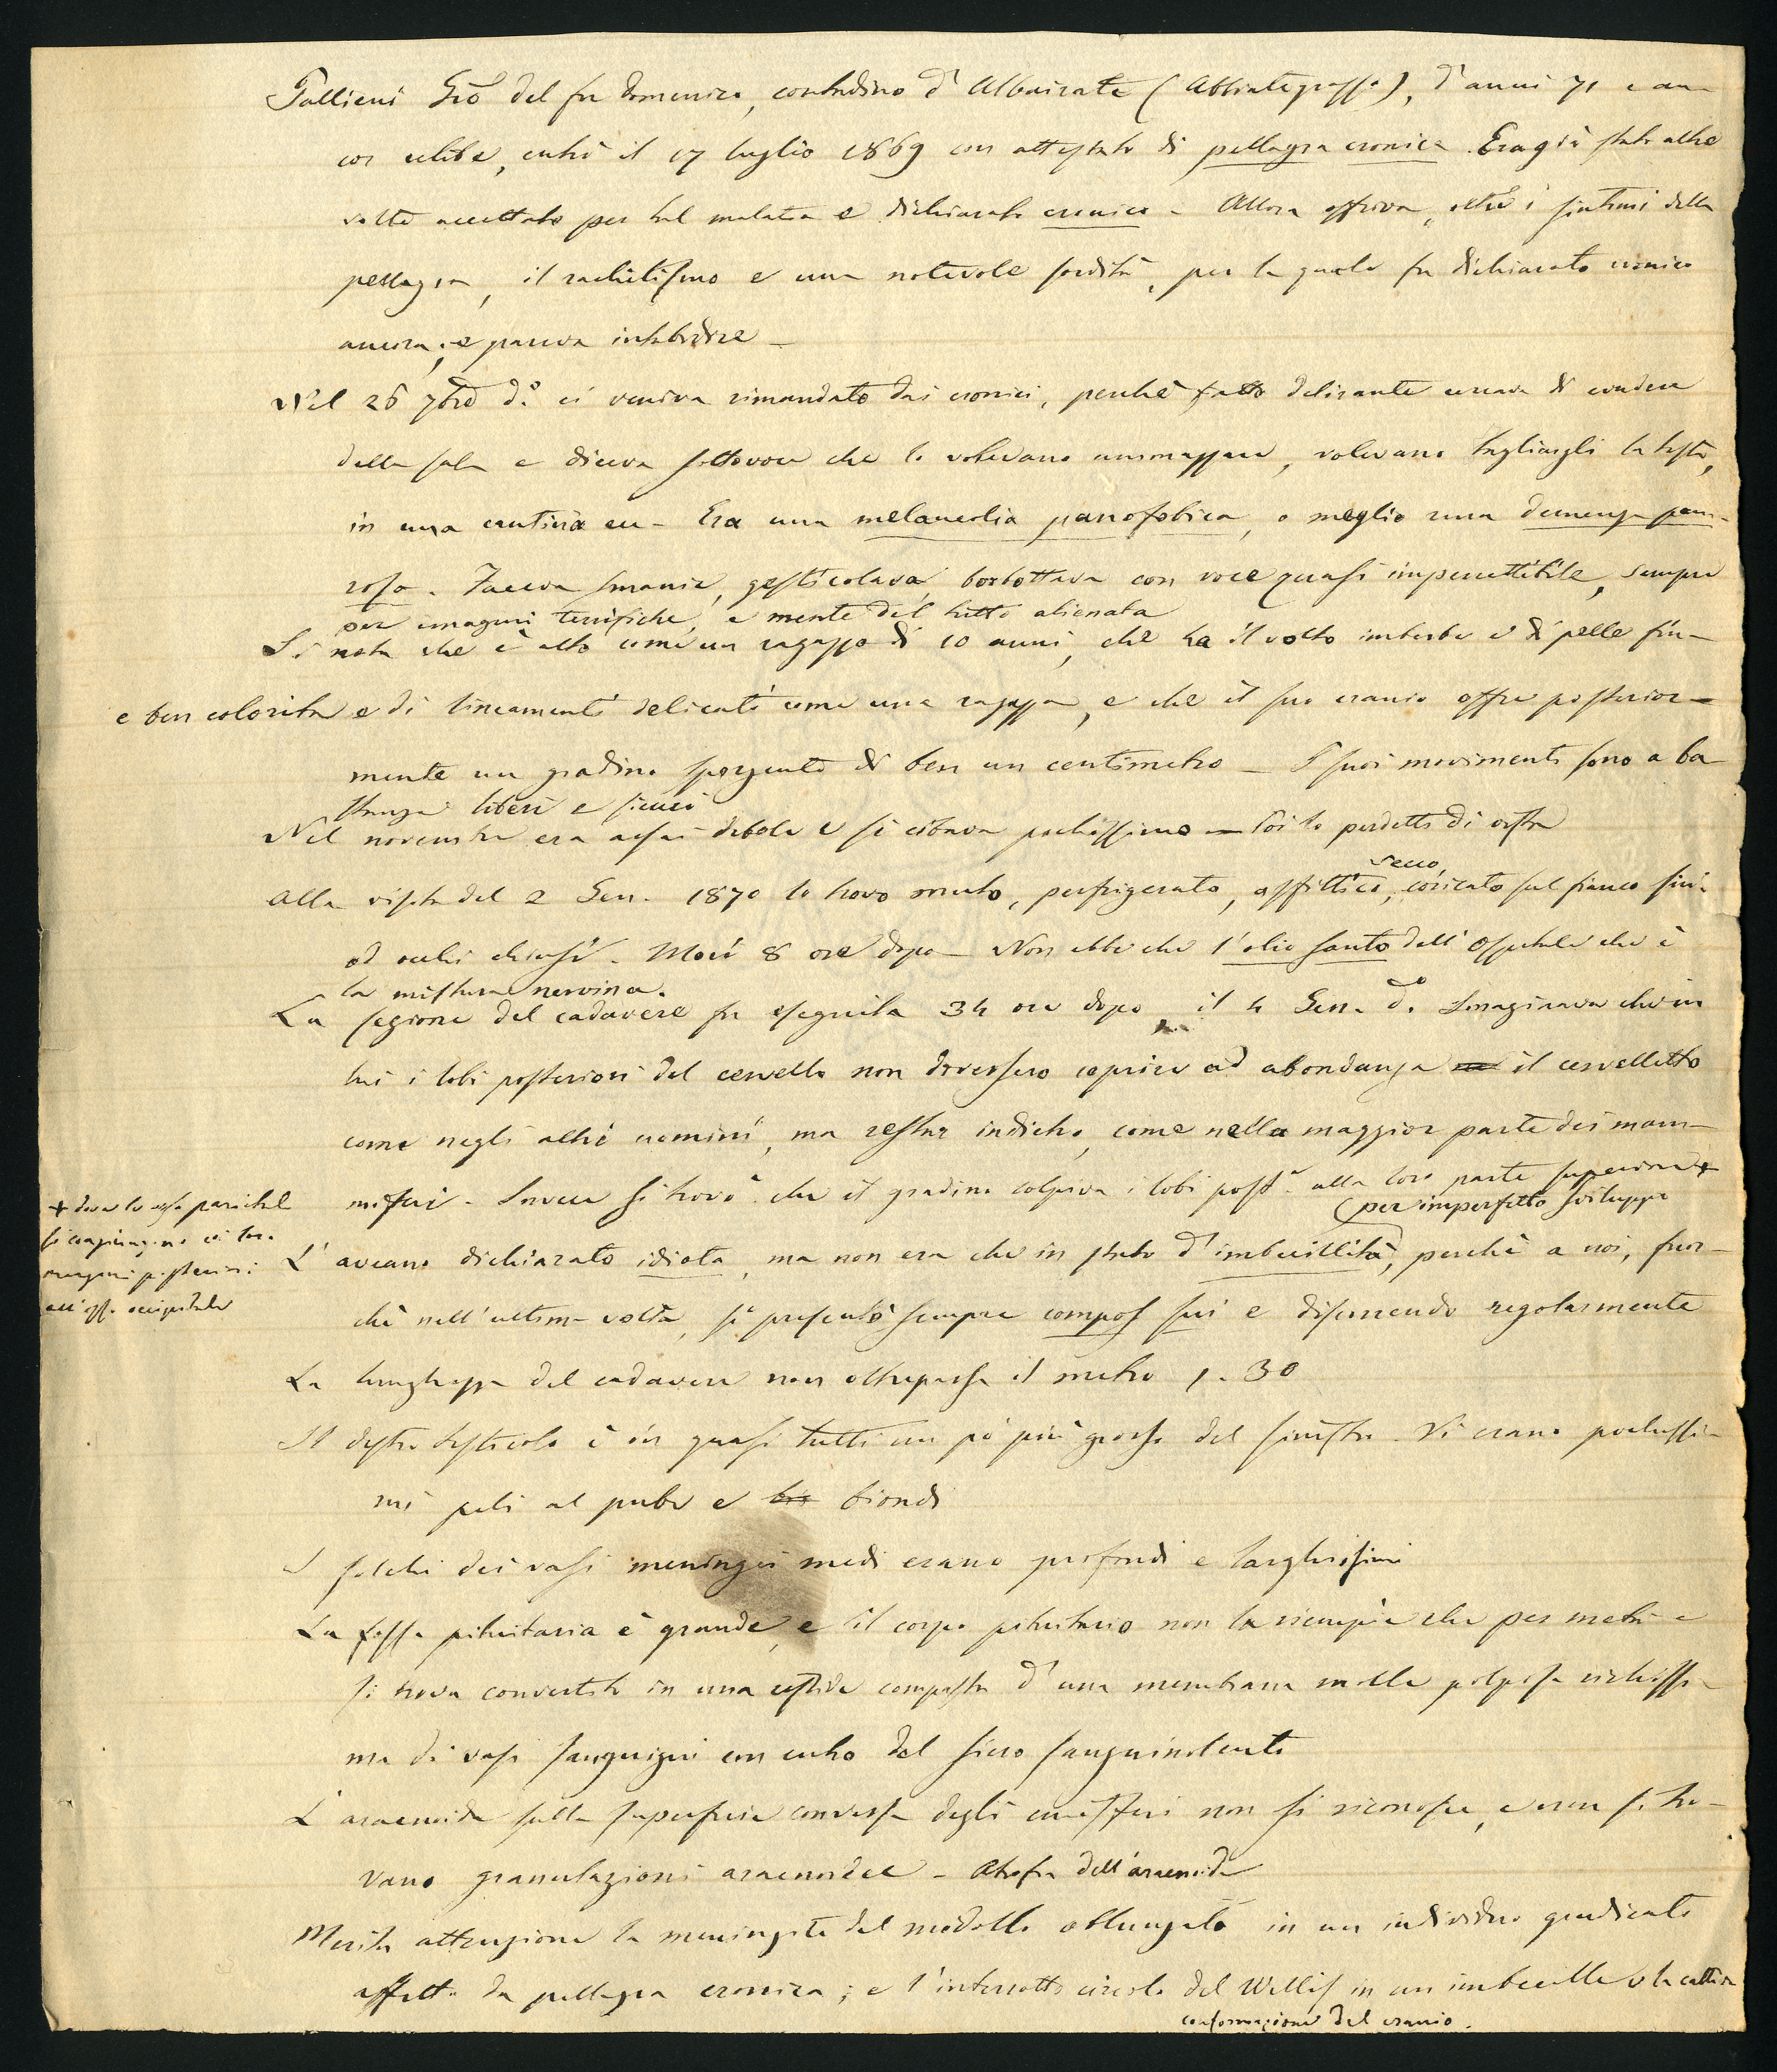 Gallieni Giō del fu Domenico, contadino d'Albairate (Abbiategrasso), d'anni 71 e an-
cor celibe, entrò il 17 luglio 1869 con attestato di pellagra cronica. Era già stato altre
volte accettato per tal malatia e dichiarato cronico - Allora offriva, oltre i sintomi della
pellagra, il rachitismo e una notevole sordità, per la quale fu dichiarato cronico
ancora; e pareva intebidire -
Nel 26 7bre do. ci veniva rimandato dai cronici, perchè fatto delirante cercava di evadere
dalla sala e diceva sottovoce che lo volevano ammazzare, volevano tagliargli la testa,
in una cantina ecc - Era una melancolia panofobica, o meglio una demenza pau-
rosa. Faceva smanie, gesticolava, borbottava con voce quasi impercettibile, sempre
per imagini terrifiche, e mente del tutto alienata
Si nota che è alto come un ragazzo di 10 anni, che ha il volto imberbe e di pelle fin-
e ben colorita e di lineamenti delicati come una ragazza, e che il suo cranio offre posterior-
mente un gradino sporgente di ben un centimetro - I suoi movimenti sono a ba-
stanza liberi e sicuri
Nel novembre era assai debole e si cibava pochissimo - Poi lo perdetti di vista
Alla visita del 2 Gen. 1870 lo trovo muto, perfrigerato, asfittico, secco, coricato sul fianco sini-
ad occhi chiusi. Morì 8 ore dopo - Non ebbe che l'olio santo dell'Ospitale che è
la mistura nervina.
La sezione del cadavere fu eseguita 34 ore dopo, il 4 Gen. do. Imaginava che in
lui i lobi posteriori del cervello non dovessero coprire ad abondanza il cervelletto
come negli altri uomini, ma restar indietro, come nella maggior parte dei mam-
miferi. Invece si trovò che il gradino colpiva i lobi post.i alla loro parte superiore +
+ dove le ossa parietali
si congiungono coi loro
margini posteriori
all'osso occipitale
(per imperfetto sviluppo
L'aveano dichiarato idiota, ma non era che in stato d'imbecillità, perchè a noi, fuor-
chè nell'ultima volta, si presentò sempre compos sui e discorrendo regolarmente
La lunghezza del cadavere non oltrepassa il metro 1.30
Il destro testicolo è in quasi tutti un pò più grosso del sinistro. Vi erano pochissi-
mi peli al pube e bio biondi
I solchi dei vasi meningei medi erano profondi e larghissimi
La fossa pituitaria è grande, e il corpo pituitario non la riempie che per metà e
si trova convertito in una cistide composta d'una membrana molle polposa ricchissi-
ma di vasi sanguigni con entro del siero sanguinolento
L'aracnoide sulla superficie convessa degli emisferi non si riconosce, e non si tro-
vano granulazioni aracnoidee - Atrofia dell'aracnoide
Merita attenzione la meningite del midollo oblungato in un individuo giudicato
affetto da pellagra cronica; e l'interrotto circolo del Willis in un imbecille e la cattiva
conformazione del cranio.